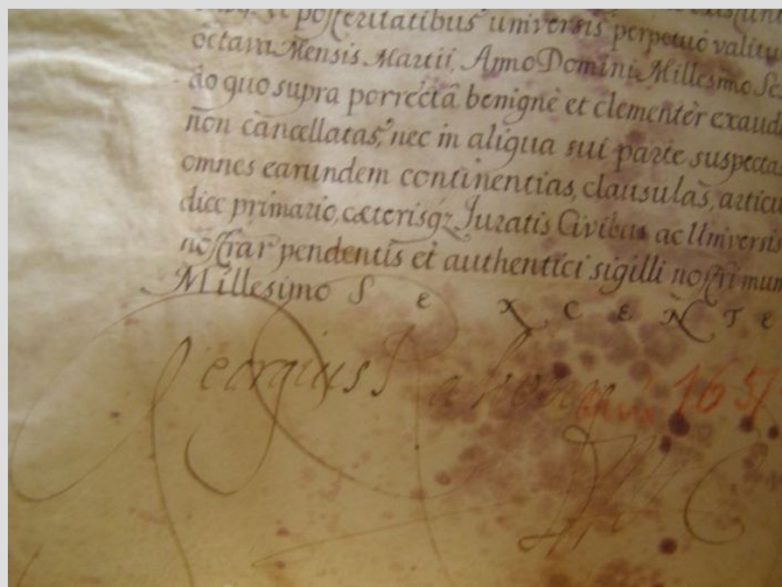 posteritatibus universis perpetuò valitu
octava Mensis Martii, Anno Domini Millesimo Sex
do quo supra porrectâ benignè et clementèr exaudi
non cancellatas, nec in aliqua sui parte suspectas
omnes earundem continentias, clausulas, articu
dice primario, caeterisqz Juratis Civibus ac Universis
nostrar pendentis et authentici sigilli nostri mun
Millesimo S e X C E N T e
Georgius Rakoczy
165